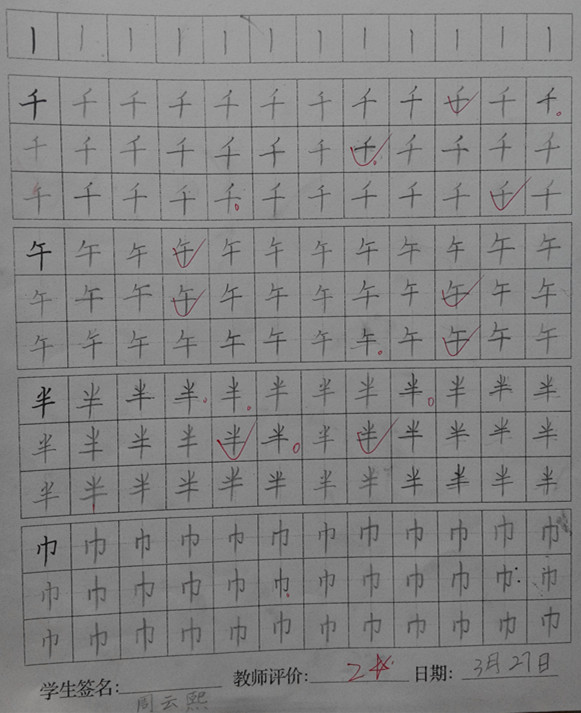 丨丨丨丨丨丨丨丨丨丨丨丨
千千千千千千千千千千千千
千千千千千千千千千千千千
千千千千千千千千千千千千
午午午午午午午午午午午午
午午午午午午午午午午午午
午午午午午午午午午午午午
半半半半半半半半半半半半
半半半半半半半半半半半半
半半半半半半半半半半半半
巾巾巾巾巾巾巾巾巾巾巾巾
巾巾巾巾巾巾巾巾巾巾巾巾
巾巾巾巾巾巾巾巾巾巾巾巾
学生签名: 周云熙 教师评价: 日期: 3月27日